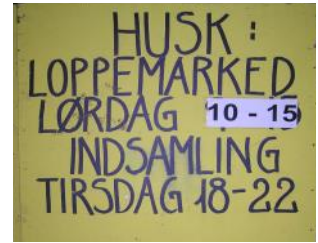 HUSK:
LOPPEMARKED
LØRDAG 10 - 15
INDSAMLING
TIRSDAG 18-22